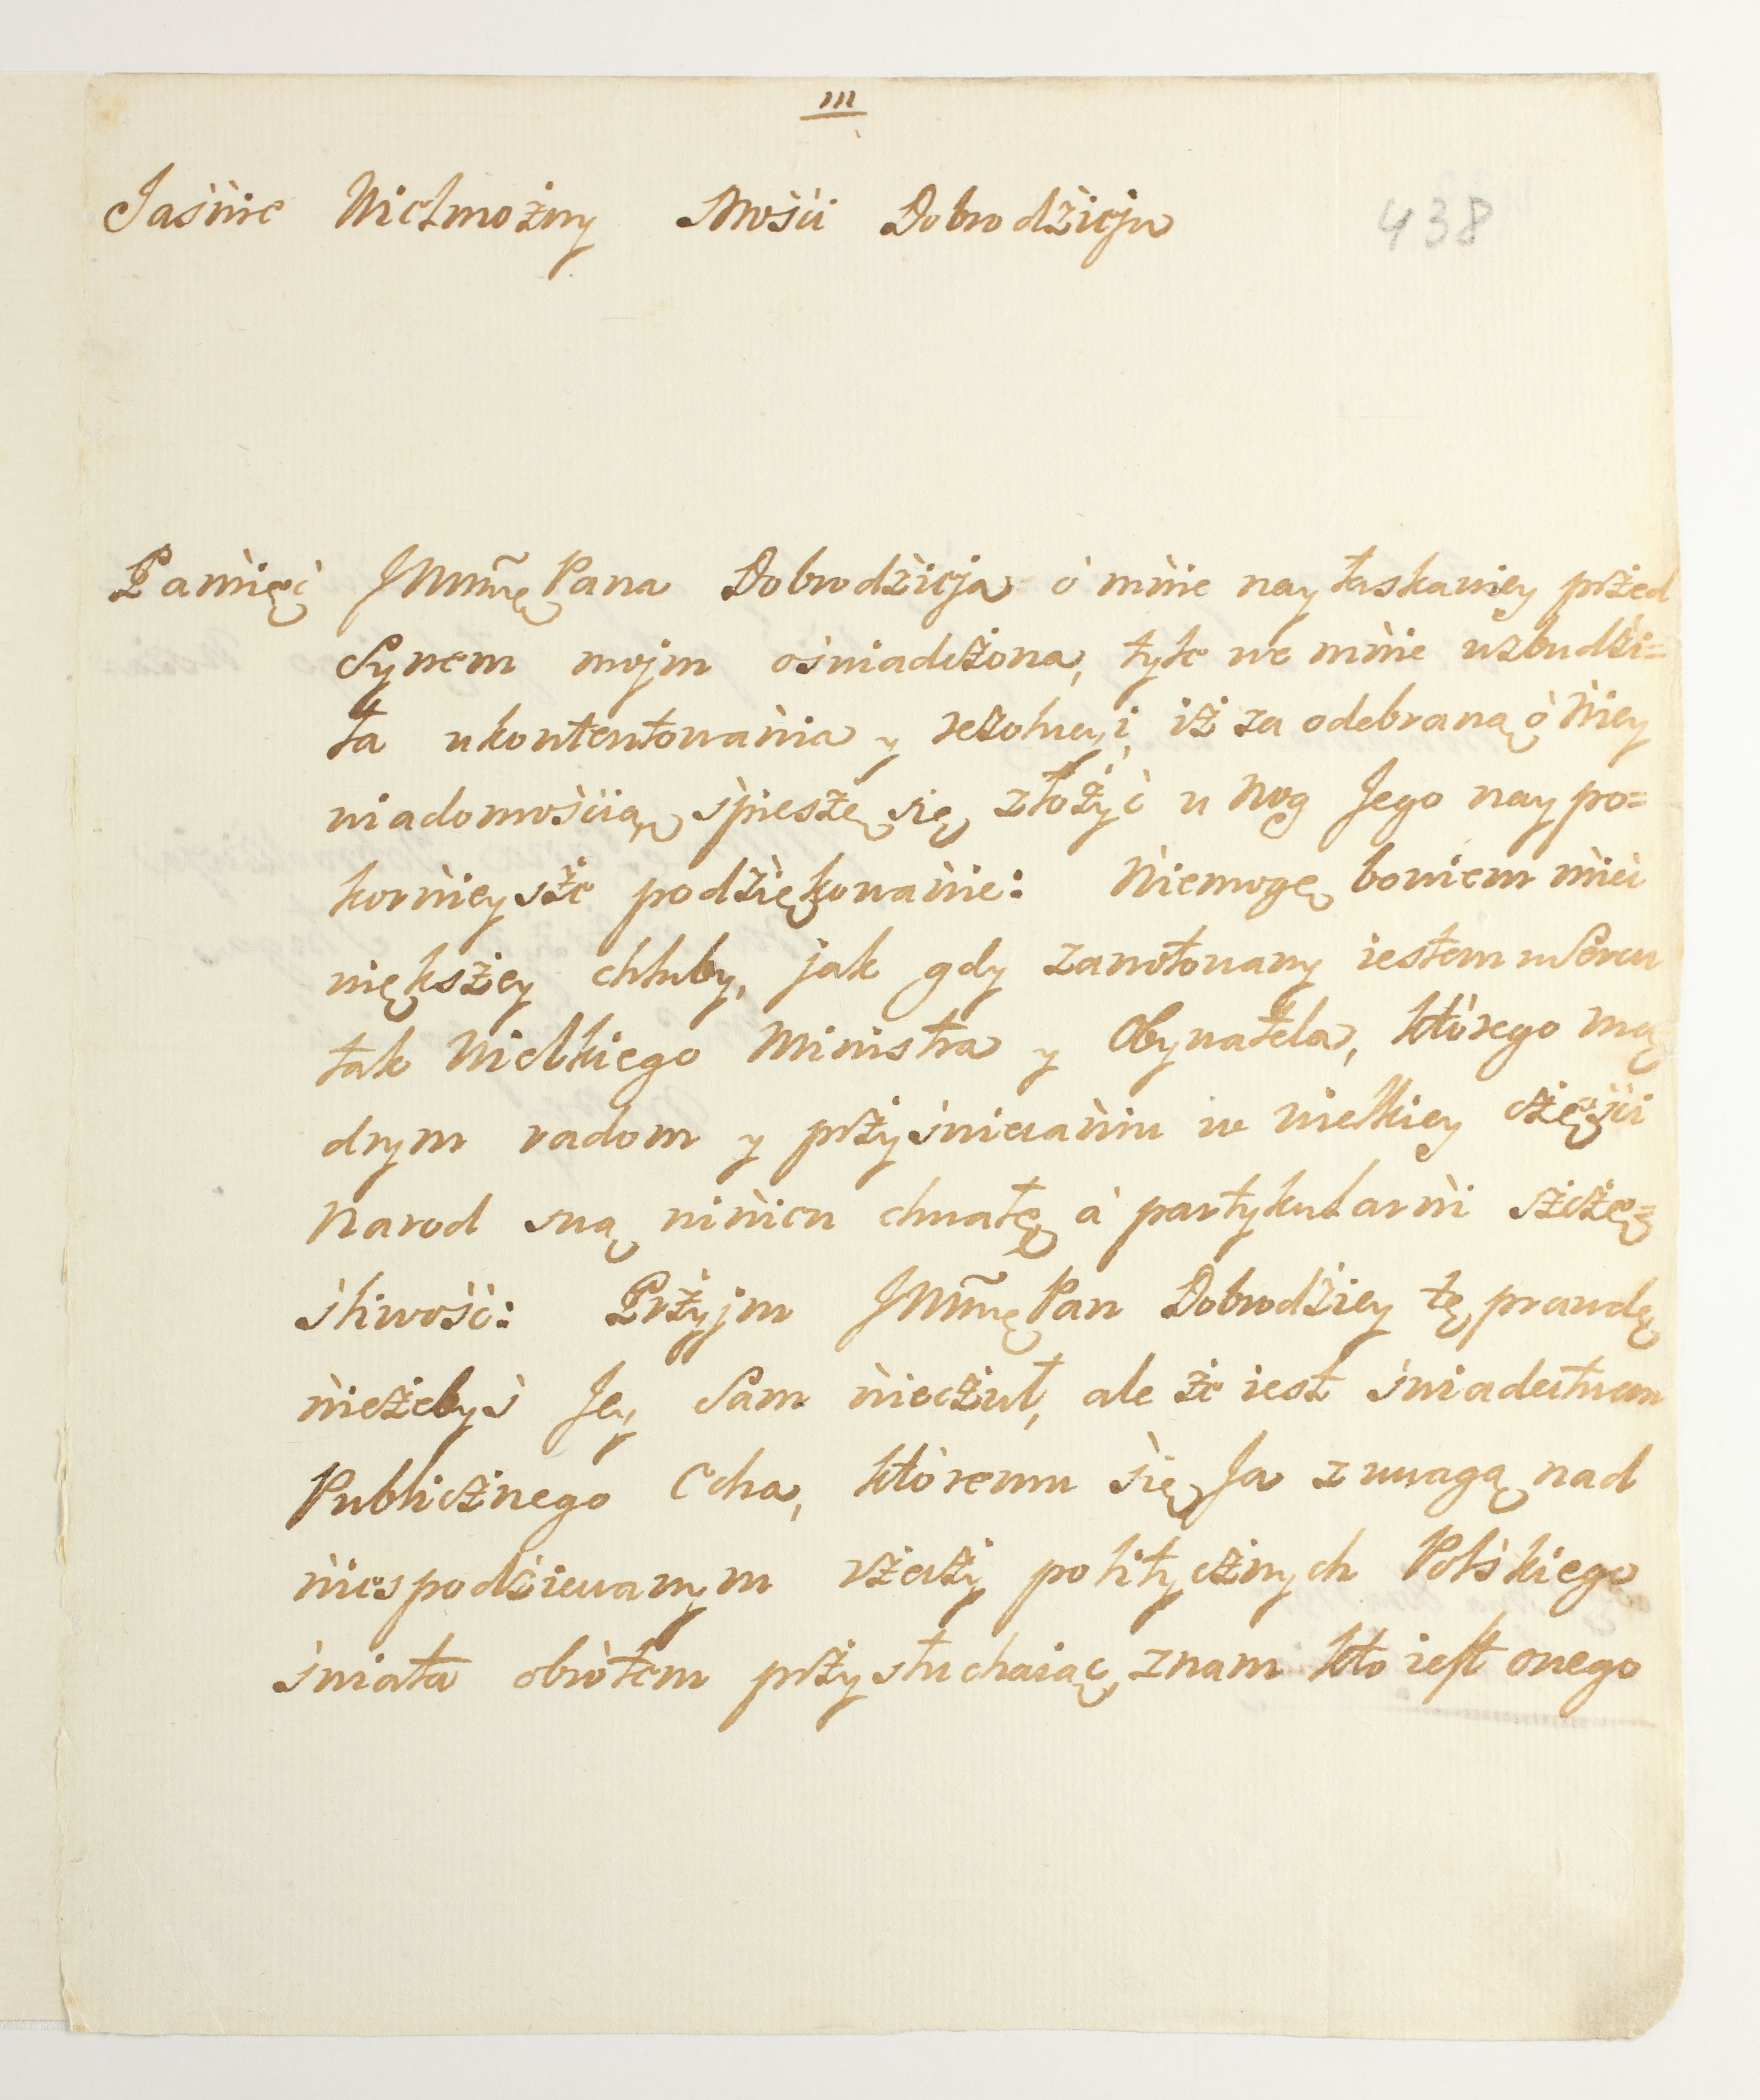 m
Jaśnie Wielmożny Mości Dobrodźieju
438
Pamięć JWWMę Pana Dobrodźieja ó mńie nayłaskawiey przed
Synem mojm oświadczona, tyle we mńie wzbudźi=
ła ukontentowańia y rezolucyi, iż za odebraną ó Ńiey
wiadomośćią, śpieszę się złożyć u Nog Jego naypo=
korńieysże podźiękowańie: Ńiemogę bowiem mieć
większey chluby, jak gdy zanotowany iestem w Sercu
tak Wielkiego Ministra y Obywatela, którego mą
drym radom y przyświecańiu w wielkiey części
Narod swą wińien chwałę á partykularńi szczę=
śliwość: Przyjm JWWMę Pan Dobrodźiey tę prawdę
ńieżebyś Jey Sam ńieczuł, ale że iest świadectwem
Publicznego Echa, któremu się Ja z uwagą nad
ńiespodźiewanym rzeczy politycznych Polskiego
świata obrótem przysłuchaiąc, znam kto iest onego